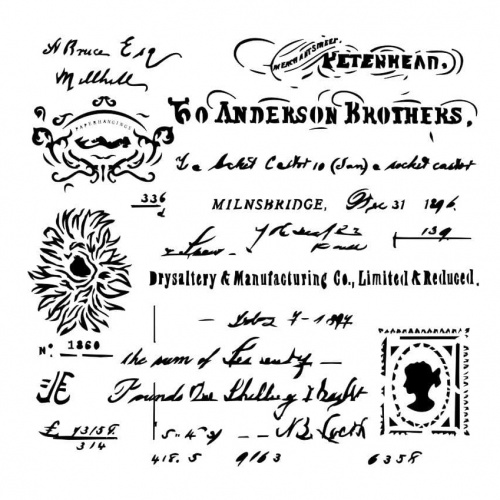 A Bruce Esq
Millhill
MERCHANT STREET.
PETERHEAD.
PAPERHANGINGS
To ANDERSON BROTHERS,
To a Socket Castor 10 (Jan) a socket castor
336
MILNSBRIDGE, Dec 31 1896.
139
Drysaltery & Manufacturing Co., Limited & Reduced.
7-1897
No. 1860
the sum of Seventy
Pounds One Shilling & Eight
£ 73/58
314
N.B. Lock
418.5 9/63 6358